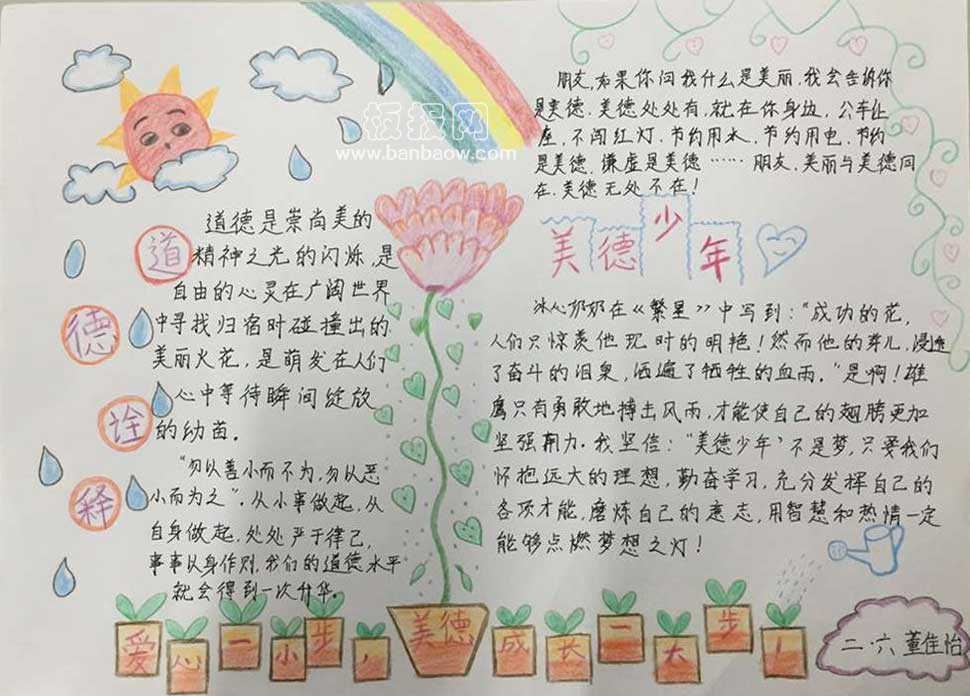 板报网
www.banbaow.com
道德诠释
道德是崇尚美的
精神之光的闪烁,是
自由的心灵在广阔世界
中寻找归宿时碰撞出的
美丽火花,是萌发在人们
心中等待瞬间绽放
的幼苗。
“勿以善小而不为,勿以恶
小而为之”.从小事做起,从
自身做起,处处严于律己,
事事以身作则,我们的道德水平
就会得到一次升华.
朋友,如果你问我什么是美丽.我会告诉你
是美德.美德处处有,就在你身边,公车让
座,不闯红灯.节约用水.节约用电.节约
是美德.谦虚是美德……朋友.美丽与美德同
在.美德无处不在!
美德少年
冰心奶奶在《繁星》中写到:“成功的花,
人们只惊羡他现时的明艳!然而他的芽儿,浸透
了奋斗的泪泉,洒遍了牺牲的血雨.”是啊!雄
鹰只有勇敢地搏击风雨,才能使自己的翅膀更加
坚强有力.我坚信:“美德少年’不是梦,只爱我们
怀抱远大的理想,勤奋学习,充分发挥自己的
各项才能,磨炼自己的意志,用智慧和热情一定
能够点燃梦想之灯!
爱心一小步,美德成长一大步!
二.六 董佳怡